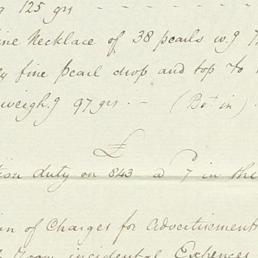 125 grs -
Necklace of 38 pearls w.g
fine pearl drop and top to
weigh.g 97 grs. - (Bot in)
£
duty on 843 a 7 in the
of Charges for Advertisement
Room incidental Expences